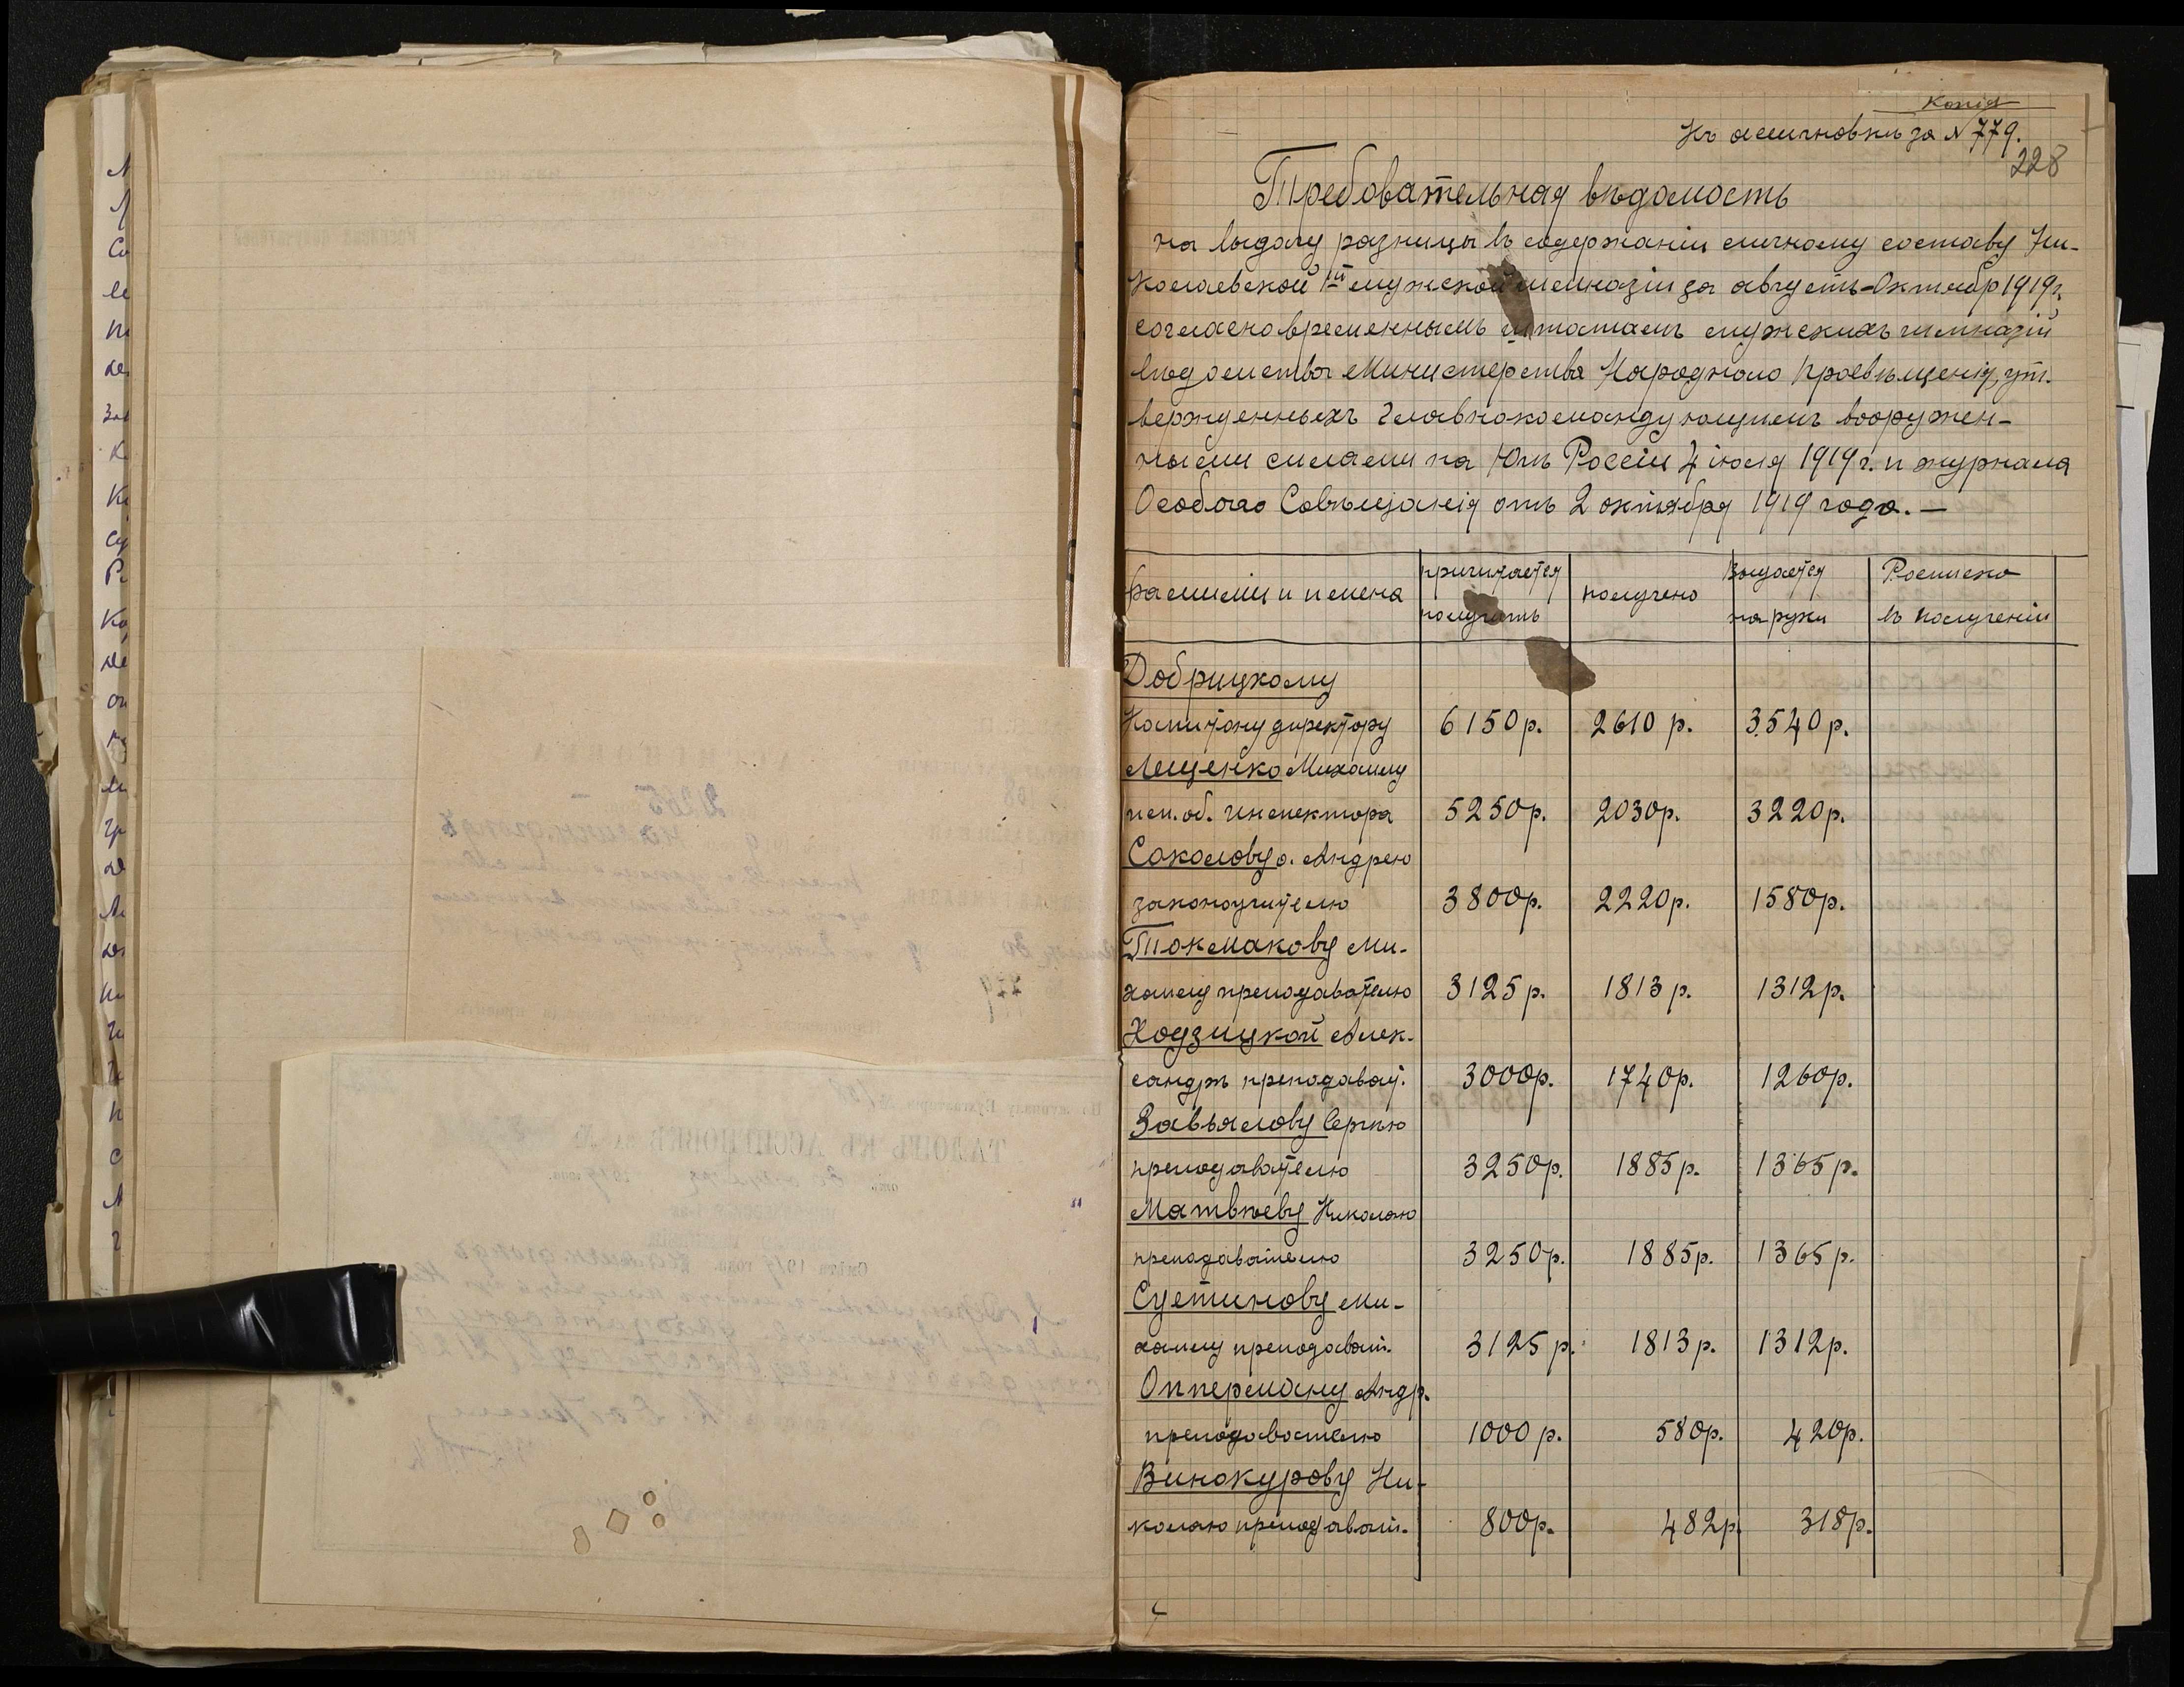 Копія
Къ ассигновкѣ за N 779.
228
Требовательная вѣдомость
на выдачу разницы въ содержаніи личному составу Ни-
колаевской 1й мужской гимназіи за августъ-Октябр 1919г.
согласно временнымъ штатамъ мужскихъ гимназій
вѣдомства Министерства Народнаго Просвѣщенія, ут.
вержденныхъ Главнокомандующимъ вооружен-
ными силами на Югѣ Россіи 4 іюля 1919 г. и журнала
Особаго Совѣщанія отъ 2 октября 1919 года. —
Фамиліи и имена причитается получить получено Выдается на руки Росписка въ полученіи
Добрицкому
Капитону директору 6150 р. 2610 р. 3540 р.
Лещенко Михаилу
исп. об. инспектора 5250р. 2030р. 3220р.
Соколову о. Андрею
законоучителю 3800р. 2220р. 1580р.
Токмакову Ми-
хаилу преподавателю 3125 р. 1813 р. 1312р.
Ходзицкой Алек-
сандрѣ преподават. 3000р. 1740р. 1260р.
Завьялову Сергѣю
преподавателю 3250р. 1885 р. 1365 р.
Матвѣеву Николаю
преподавателю 3250р. 1885р. 1365 р.
Суетинову Ми-
хаилу преподават. 3125 р. 1813 р. 1312р.
Опперману Андр.
преподавателю 1000 р. 580р. 420р.
Винокурову Ни-
колаю преподават. 800р. 482р 318р.